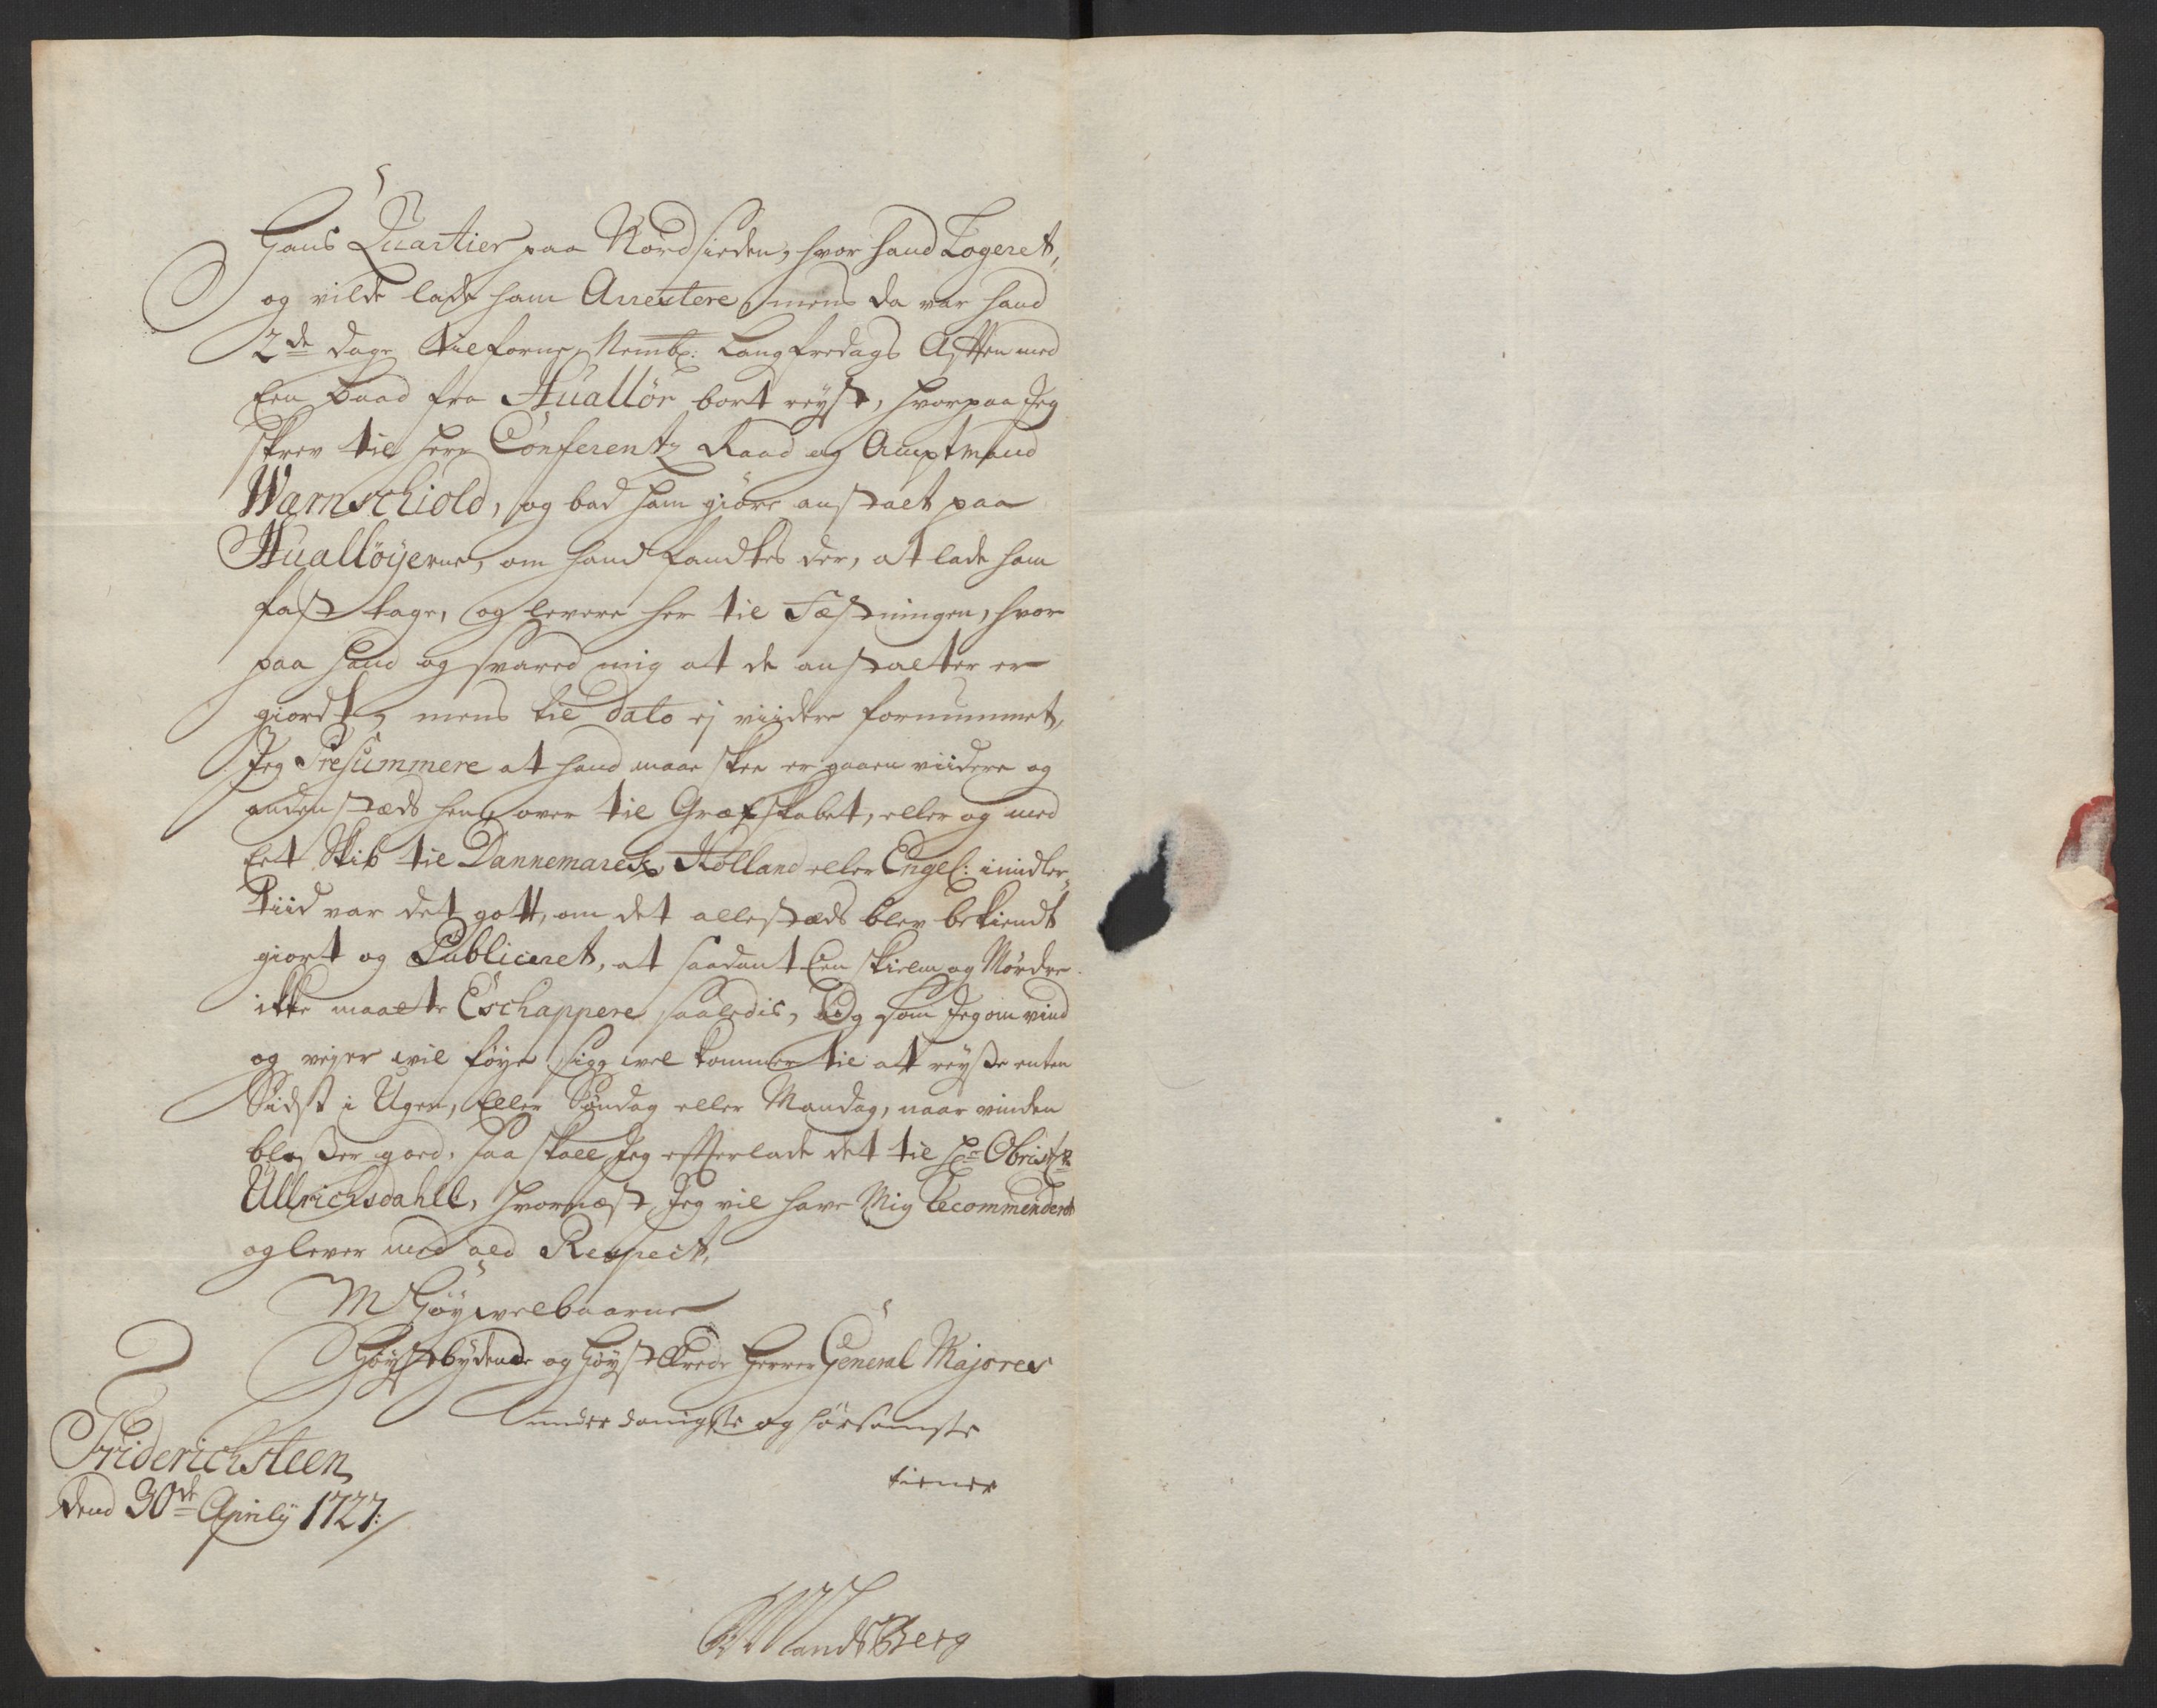 Hans Quartier paa Nordsieden, hvor hand Logeret,
og vilde lade ham Arrestere, mens da var hand
2de dage tilforne, Nembl: Langfredags Aften med
Een baad fra Huallör bort reyst, hvorpaa Jeg
skrev til herr Conferentz Raad og Amptmand
Wærnschiold, og bad ham giöre anstalt paa
Huallöyerne, om hand fandtes der, at lade ham
fast tage, og levere her til Fæstningen, hvor
paa hand og svared mig at de anstalter er
giordt, mens til dato ej viidere fornummet,
Jeg Presummere at hand maa skee er gaaen viidere og
andenstæds hen, over til Græfskabet, eller og med
Eet Skib til Dannemarck, Holland eller Engel: imidler„
tiid var det gott, om det allestæds blev bekiendt
giort og Publiceret, at saadant Een skielm og Mördre
ikke maatte Eschappere saaledis, Og som Jeg om vind
og vejer vil föye sigg vel kommer til att reyße enten
Sidst i Ugen, Eller Söndag eller Mandag, naar vinden
bleßer goed, saa skall Jeg efterlade det til Hr Obriste
Ullrichsdahll, hvornæst Jeg vil have Mig Recommenderet
og lever med ald Respect,
M Höyvelbaarne
Höystbydende og Höyst Ærede Herrer General Majorer
underdanigste og hörsomste
tiener
Friderichsteen
dend 30de Aprily 1727:/
Landtberg